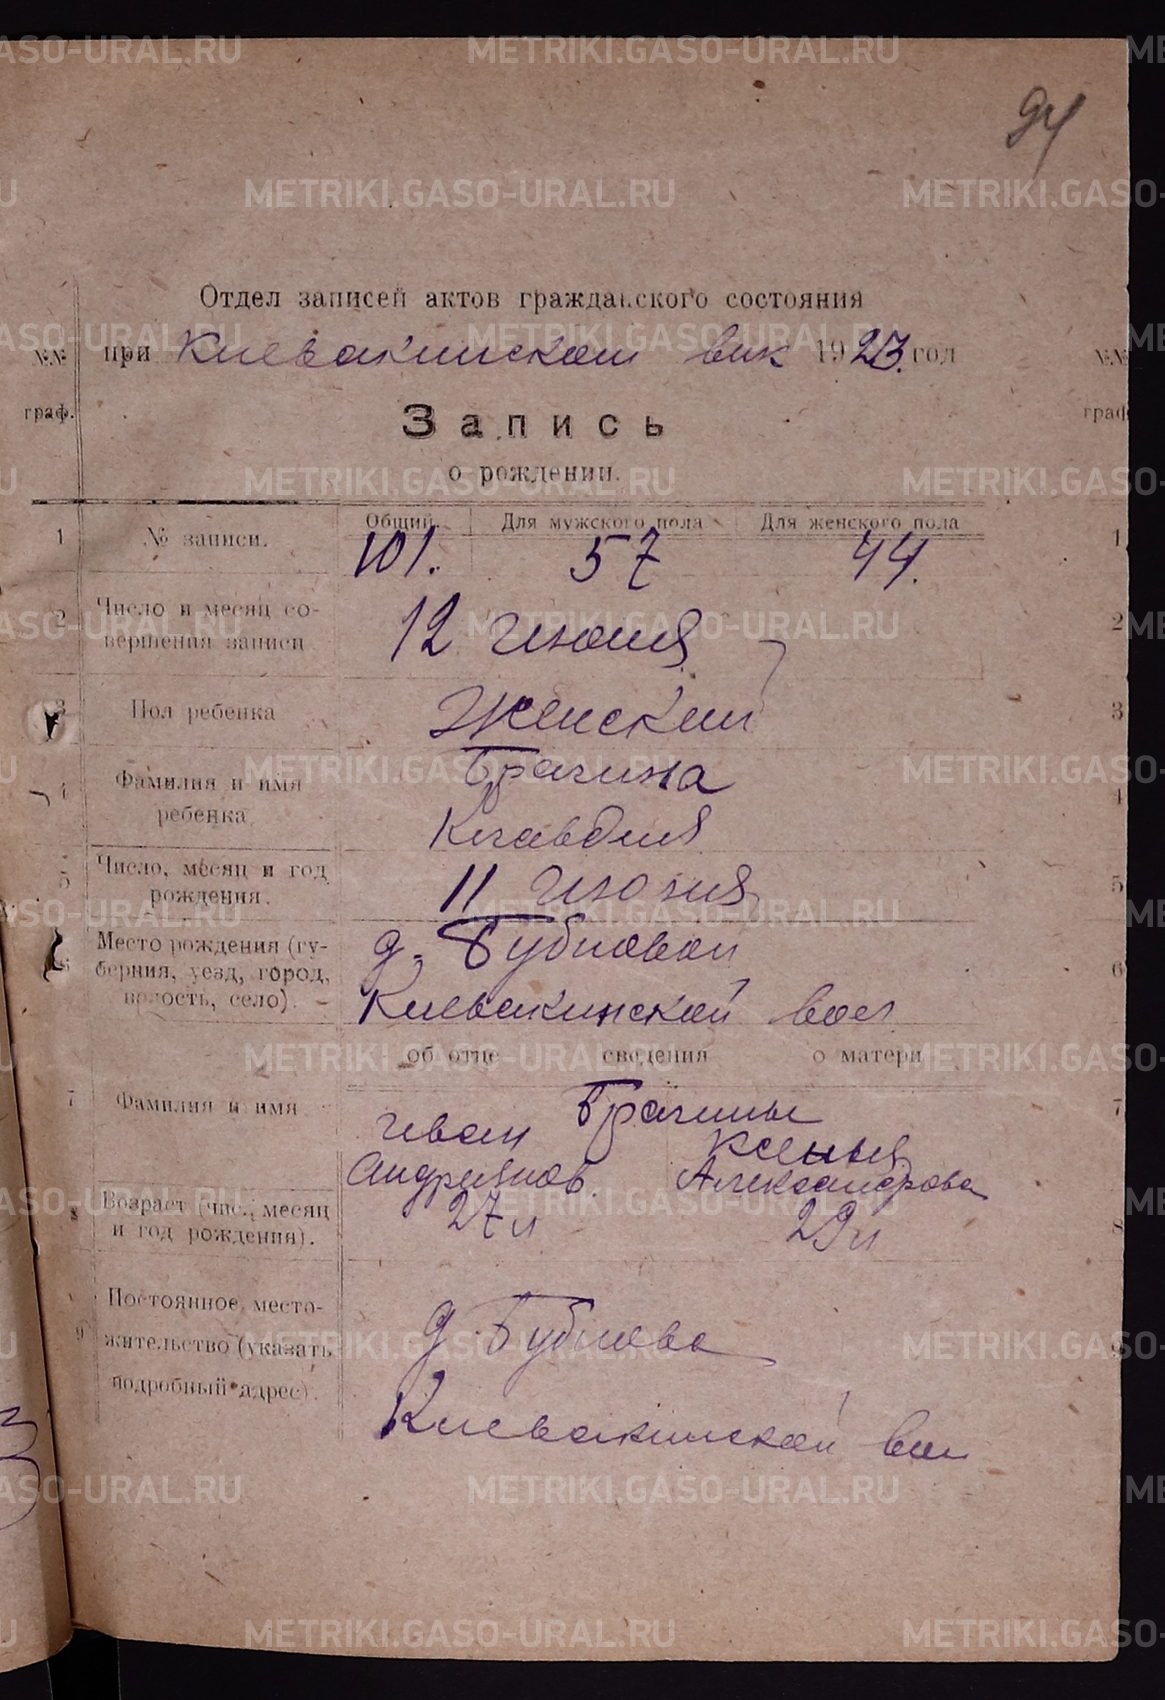 94
Отдел записей актов гражданского состояния
№№ при Клевакинском вик 1923 год №№
граф. Запись граф
о рождении.
Общий. Для мужского пола Для женского пола
1 № записи. 101. 57 44. 1
2 Число и месяц со- 12 июня 2
вершения записи
3 Пол ребенка Женский 3
4 Фамилия и имя Брагина 4
ребенка Клавдия
5 Число, месяц и год 11 июня 5
рождения.
6 Место рождения (гу- д. Бубновой 6
берния, уезд, город,
волость, село). Клевакинской вол
об отце сведения о матери
7 Фамилия и имя Брагины 7
Иван Ксенья
Андриянов. Александрова
8 Возраст (чис., месяц 27 л 29 л 8
и год рождения).
Постоянное место- д. Бубнова
9 жительство (указать 9
подробный адрес). Клевакинской вол
METRIKI.GASO-URAL.RU